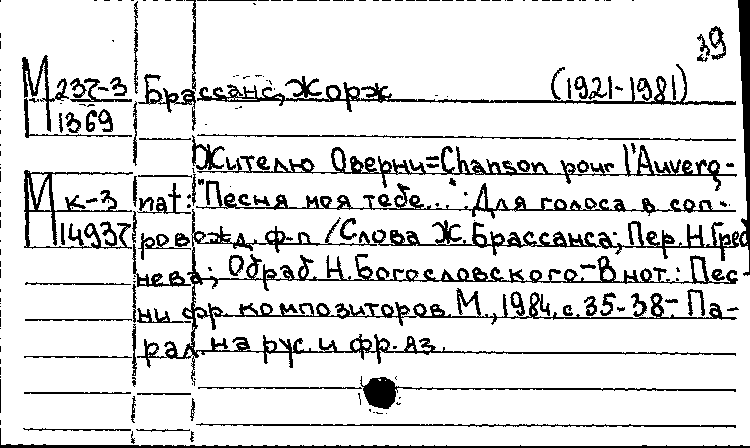 39
М 237-3 Брассанс, Жорж (1921-1981)
1369
Жителю Оверни=Chanson pour l'Auverg-
М к-3 nat: "Песня моя тебе...": Для голоса в соп-
14937 ровожд. ф-п /Слова Ж.Брассанса; Пер. Н.Гред
нева; Обраб. Н.Богословского.-В нот.: Пес-
ни фр. композиторов. М., 1984, с. 35-38.- Па-
рал. на рус. и фр. яз.